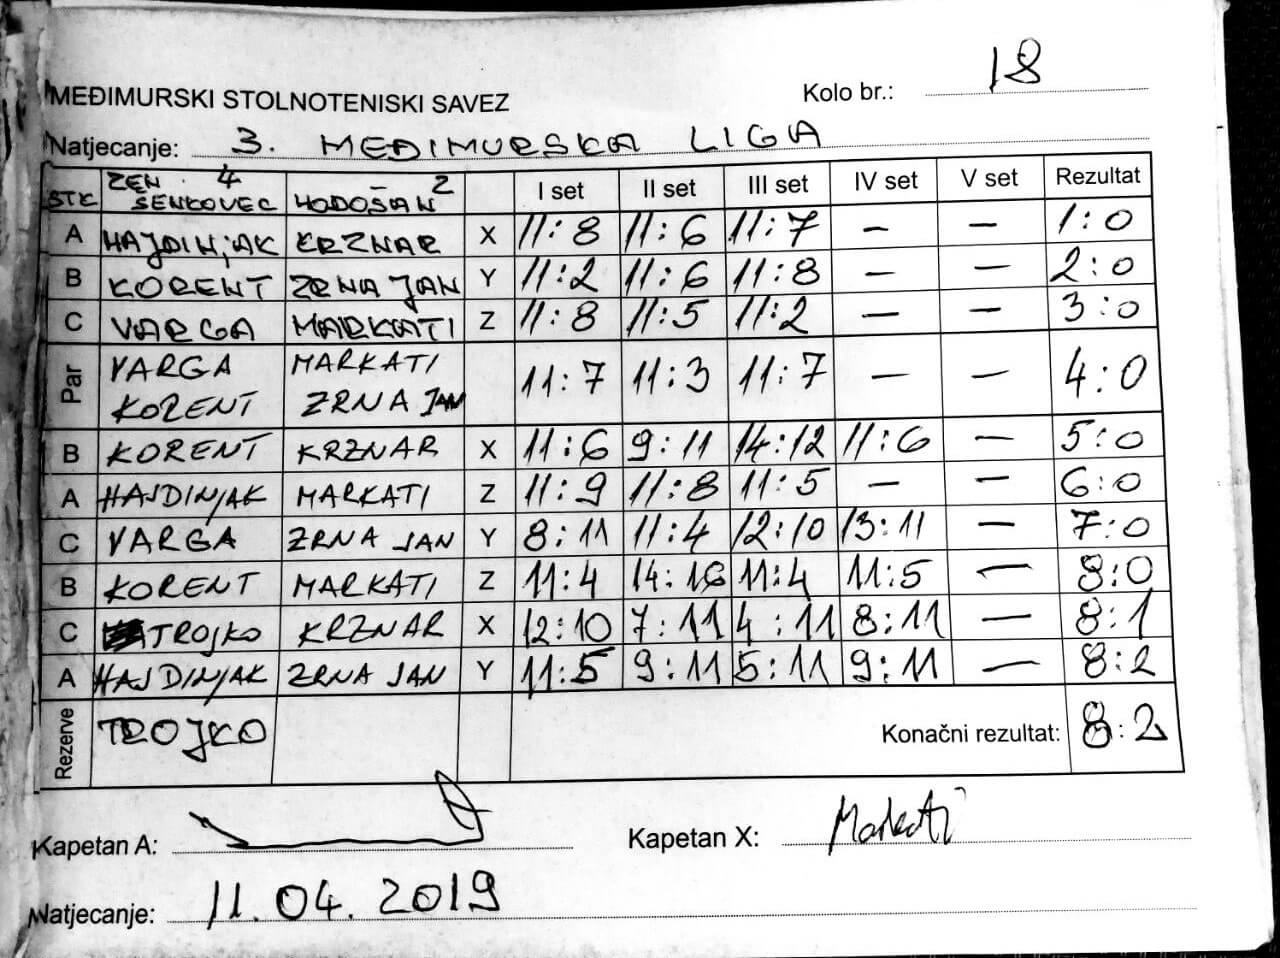 MEĐIMURSKI STOLNOTENISKI SAVEZ
Kolo br.: 18
Natjecanje: 3. MEĐIMURSKA LIGA
STK ZEN 4 SENKOVEC HODOŠAN 2 I set II set III set IV set V set Rezultat
A HAJDINJAK KRZNAR X 11:8 11:6 11:7 – – 1:0
B KORENT ZRNA JAN Y 11:2 11:6 11:8 – – 2:0
C VARGA MARKATI Z 11:8 11:5 11:2 – – 3:0
Par VARGA KORENT MARKATI ZRNA JAN 11:7 11:3 11:7 – – 4:0
B KORENT KRZNAR X 11:6 9:11 14:12 11:6 – 5:0
A HAJDINJAK MARKATI Z 11:9 11:8 11:5 – – 6:0
C VARGA ZRNA JAN Y 8:11 11:4 12:10 13:11 – 7:0
B KORENT MARKATI Z 11:4 14:16 11:4 11:5 – 8:0
C TROJKO KRZNAR X 12:10 7:11 4:11 8:11 – 8:1
A HAJDINJAK ZRNA JAN Y 11:5 9:11 5:11 9:11 – 8:2
Rezerve TROJKO Konačni rezultat: 8:2
Kapetan A: Kapetan X: Markati
Natjecanje: 11.04.2019